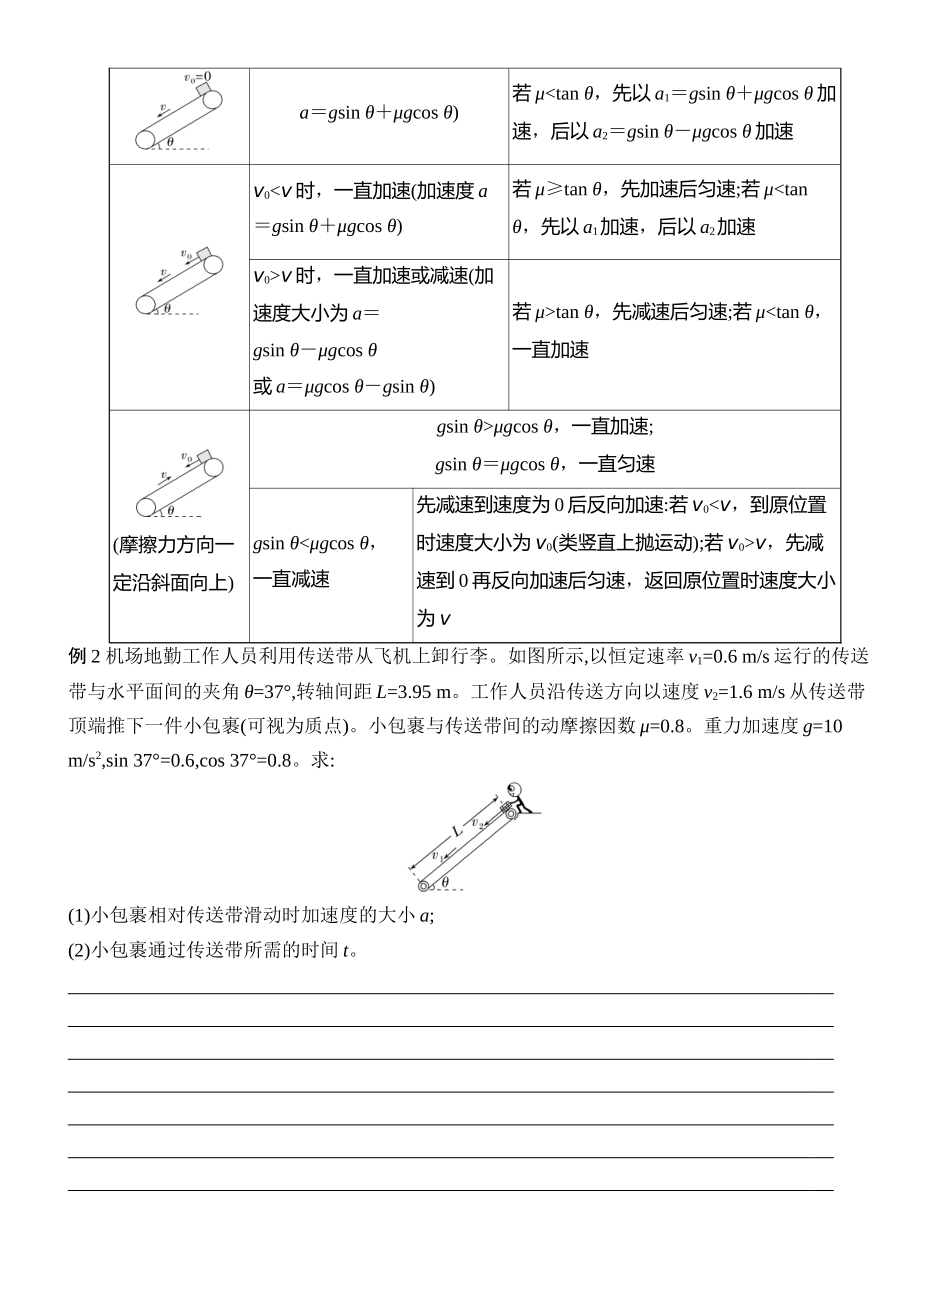 v₀=0
v
θ
a＝gsin θ＋μgcos θ)
若 μ<tan θ，先以 a₁＝gsin θ＋μgcos θ 加
速，后以 a₂＝gsin θ－μgcos θ 加速
v₀
v
θ
v₀<v 时，一直加速(加速度 a
＝gsin θ＋μgcos θ)
若 μ≥tan θ，先加速后匀速;若 μ<tan
θ，先以 a₁加速，后以 a₂加速
v₀>v 时，一直加速或减速(加
速度大小为 a＝
gsin θ－μgcos θ
或 a＝μgcos θ－gsin θ)
若 μ>tan θ，先减速后匀速;若 μ<tan θ，
一直加速
v₀
v
θ
(摩擦力方向一
定沿斜面向上)
gsin θ>μgcos θ，一直加速;
gsin θ＝μgcos θ，一直匀速
gsin θ<μgcos θ，
一直减速
先减速到速度为 0 后反向加速:若 v₀<v，到原位置
时速度大小为 v₀(类竖直上抛运动);若 v₀>v，先减
速到 0 再反向加速后匀速，返回原位置时速度大小
为 v
例 2 机场地勤工作人员利用传送带从飞机上卸行李。如图所示,以恒定速率 v₁=0.6 m/s 运行的传送
带与水平面间的夹角 θ=37°,转轴间距 L=3.95 m。工作人员沿传送方向以速度 v₂=1.6 m/s 从传送带
顶端推下一件小包裹(可视为质点)。小包裹与传送带间的动摩擦因数 μ=0.8。重力加速度 g=10
m/s²,sin 37°=0.6,cos 37°=0.8。求:
L
v₂
v₁
θ
(1)小包裹相对传送带滑动时加速度的大小 a;
(2)小包裹通过传送带所需的时间 t。